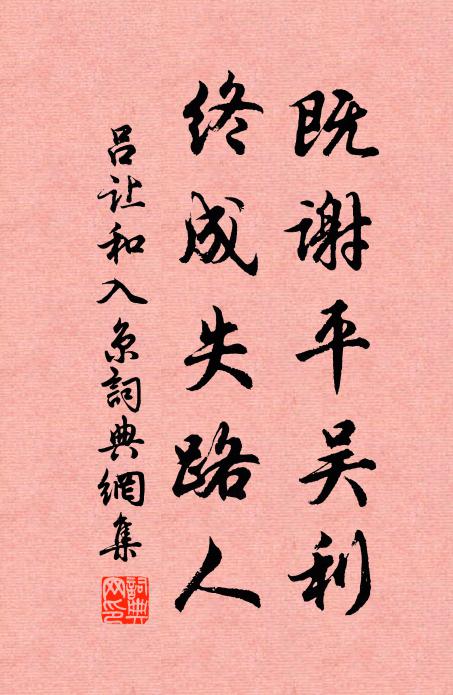 既谢平吴利
终成失路人
吕让和入京詞典網集
詞典网印